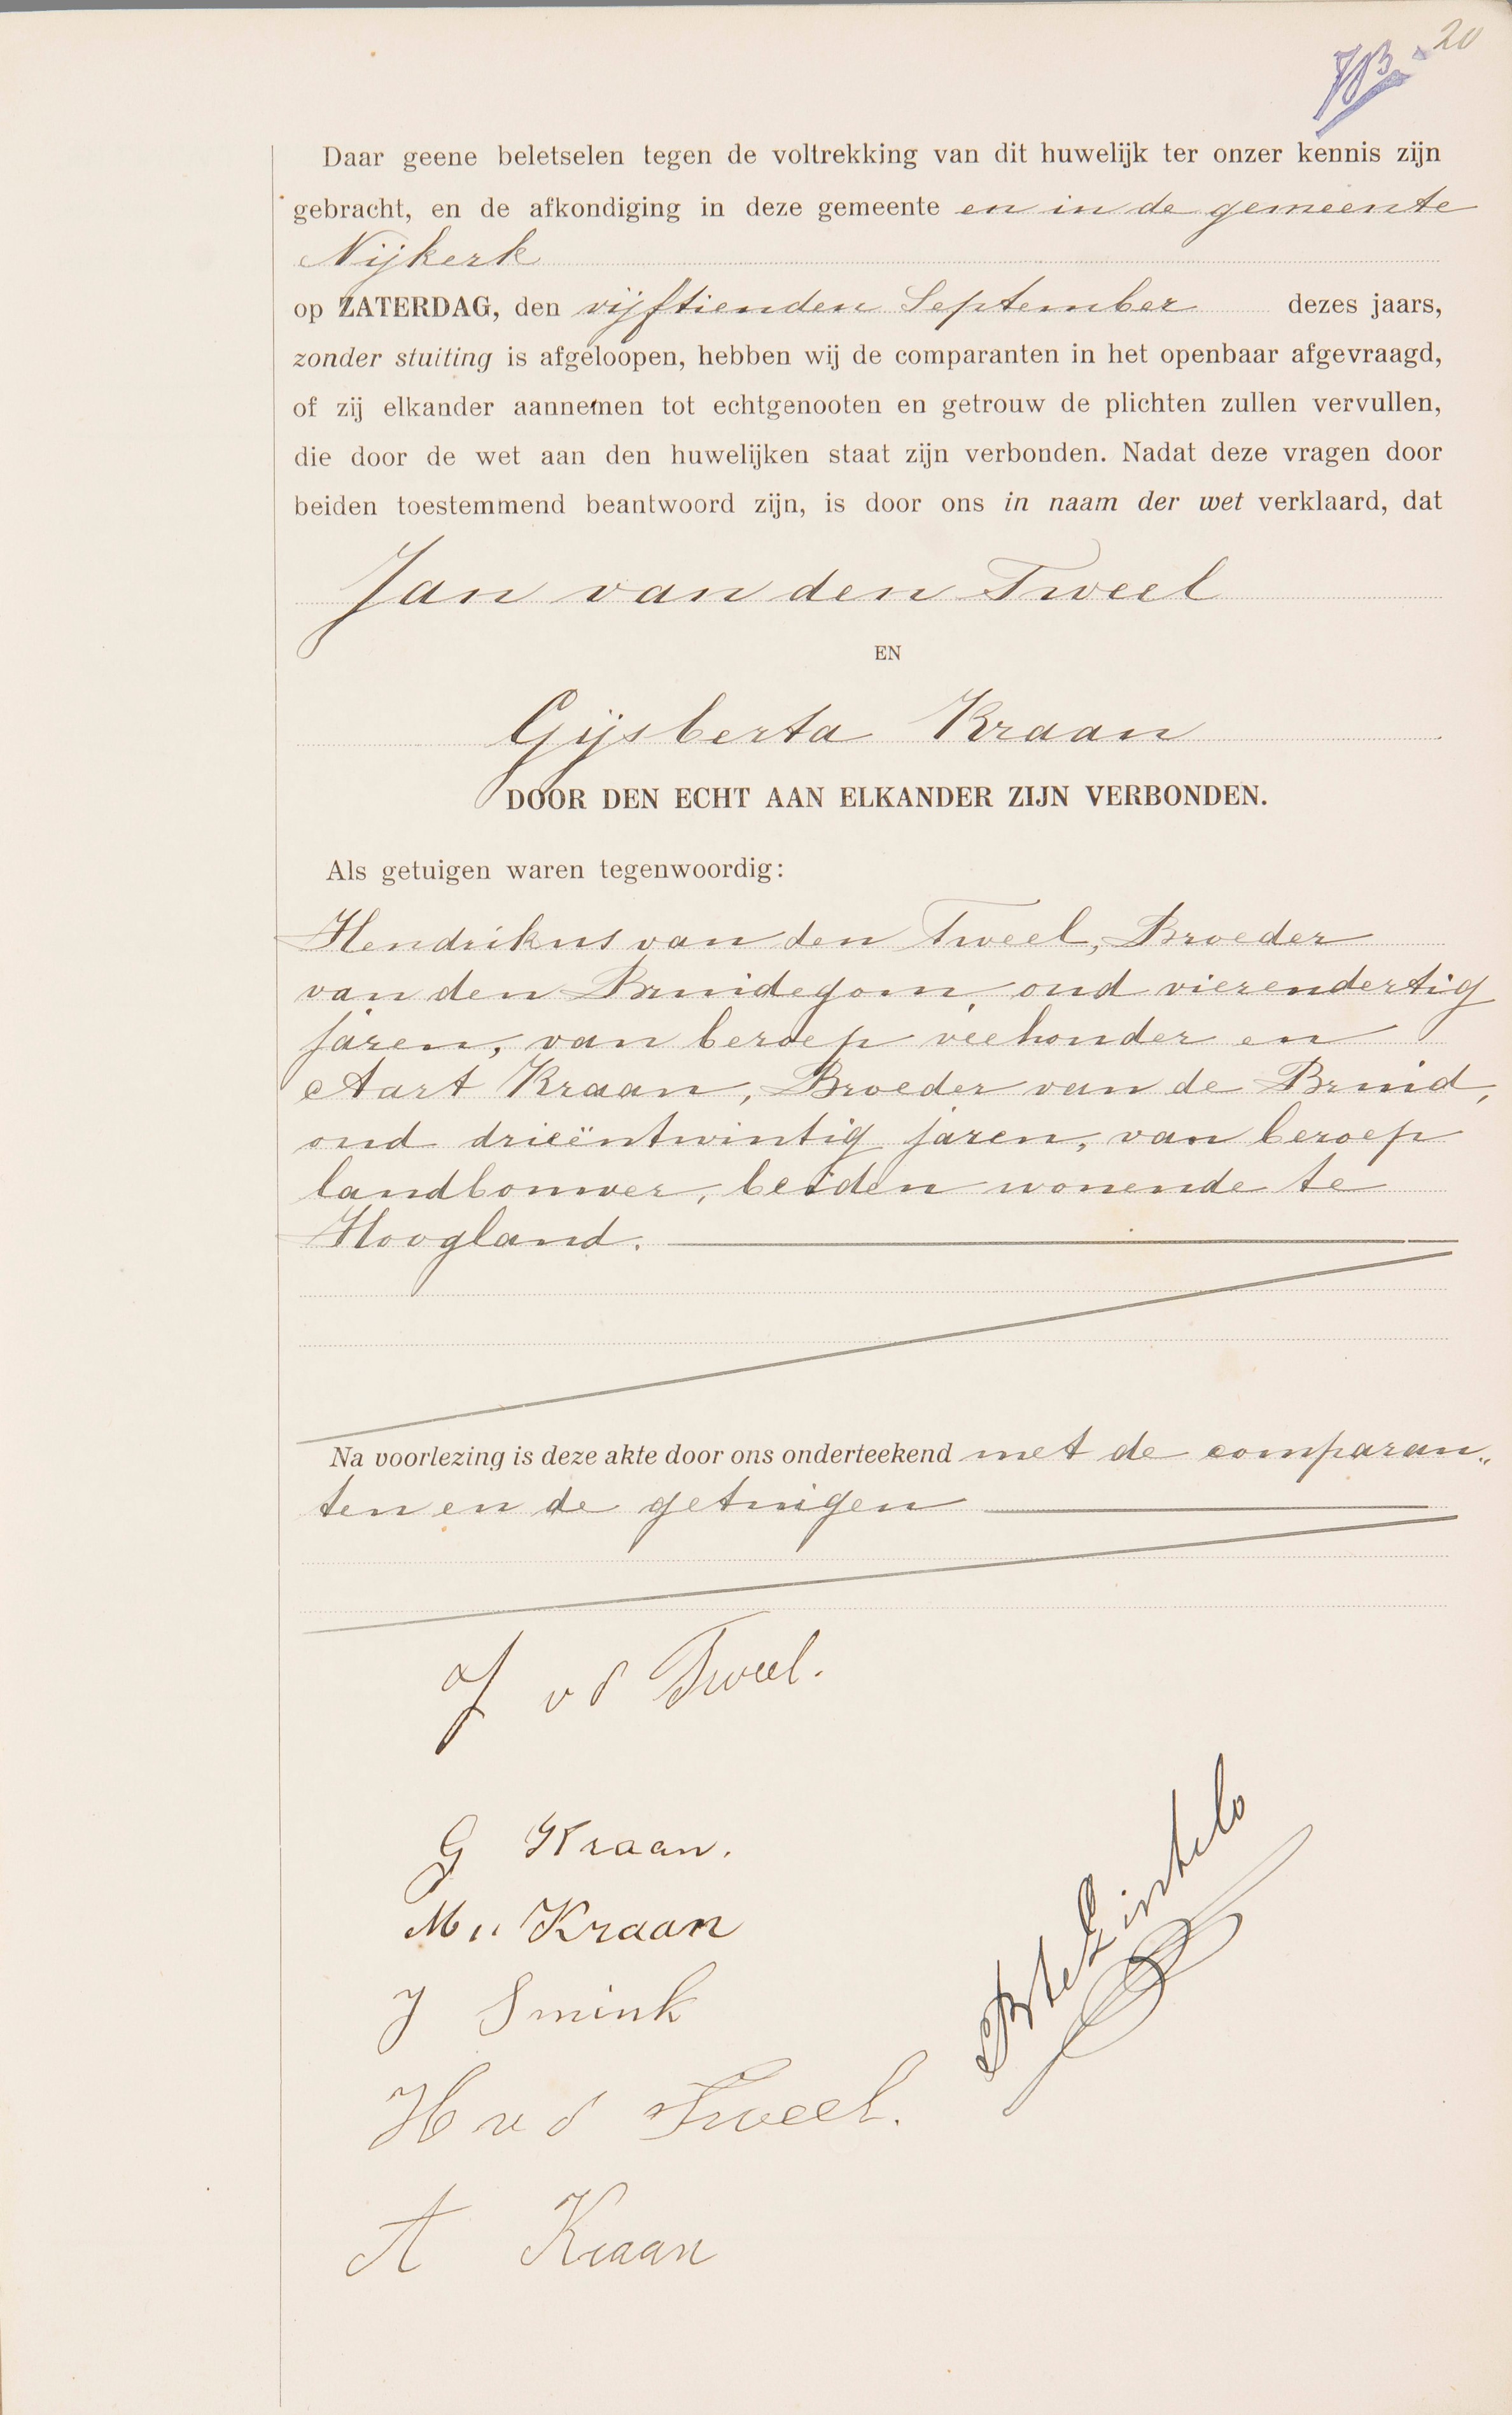 20
Daar geene beletselen tegen de voltrekking van dit huwelijk ter onzer kennis zijn
gebracht, en de afkondiging in deze gemeente en in de gemeente
Nijkerk
op ZATERDAG, den vijftienden September dezes jaars,
zonder stuiting is afgeloopen, hebben wij de comparanten in het openbaar afgevraagd,
of zij elkander aannemen tot echtgenooten en getrouw de plichten zullen vervullen,
die door de wet aan den huwelijken staat zijn verbonden. Nadat deze vragen door
beiden toestemmend beantwoord zijn, is door ons in naam der wet verklaard, dat
Jan van den Tweel
EN
Gijsberta Kraan
DOOR DEN ECHT AAN ELKANDER ZIJN VERBONDEN.
Als getuigen waren tegenwoordig:
Hendrikus van den Tweel, Broeder
van den Bruidegom, oud vierendertig
jaren, van beroep veehouder en
Aart Kraan, Broeder van de Bruid,
oud drieëntwintig jaren, van beroep
landbouwer, beiden wonende te
Hoogland.
Na voorlezing is deze akte door ons onderteekend met de comparan„
ten en de getuigen
J v d Tweel.
G Kraan.
M Kraan
J Smink
H v d Tweel.
A Kraan